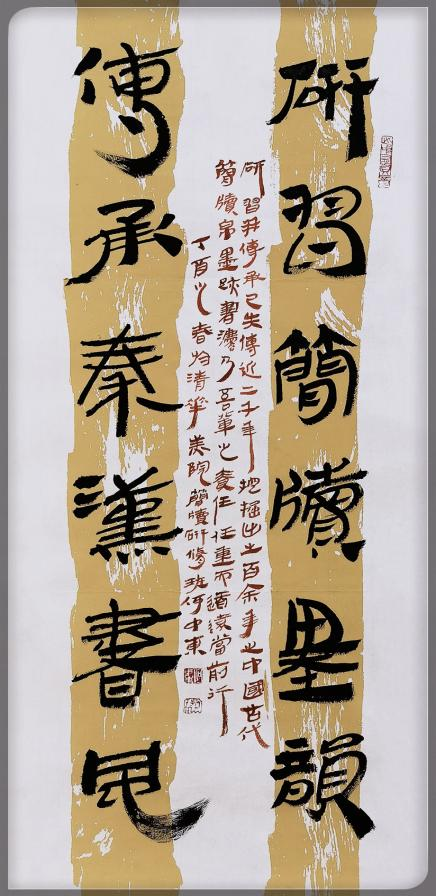 研習簡牘墨韻
傳承秦漢書風
研習并傳承已失傳近二千年掘出土百余年之中國古代
簡牘帛墨跡書灋乃吾輩之責任任重而道遠當前行
丁酉之春於清華美院簡牘研修班何中東